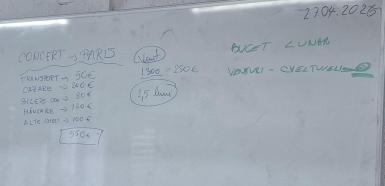 27.04.2026
CONCERT → PARIS
TRANSPORT → 50€
CAZARE → 200€
BILETE → 80€
MÂNCARE → 120€
ALTE → 100€
550€
1300 - 250€
2,5 luni
BUGET LUNAR
VENITURI - CHELTUIELI